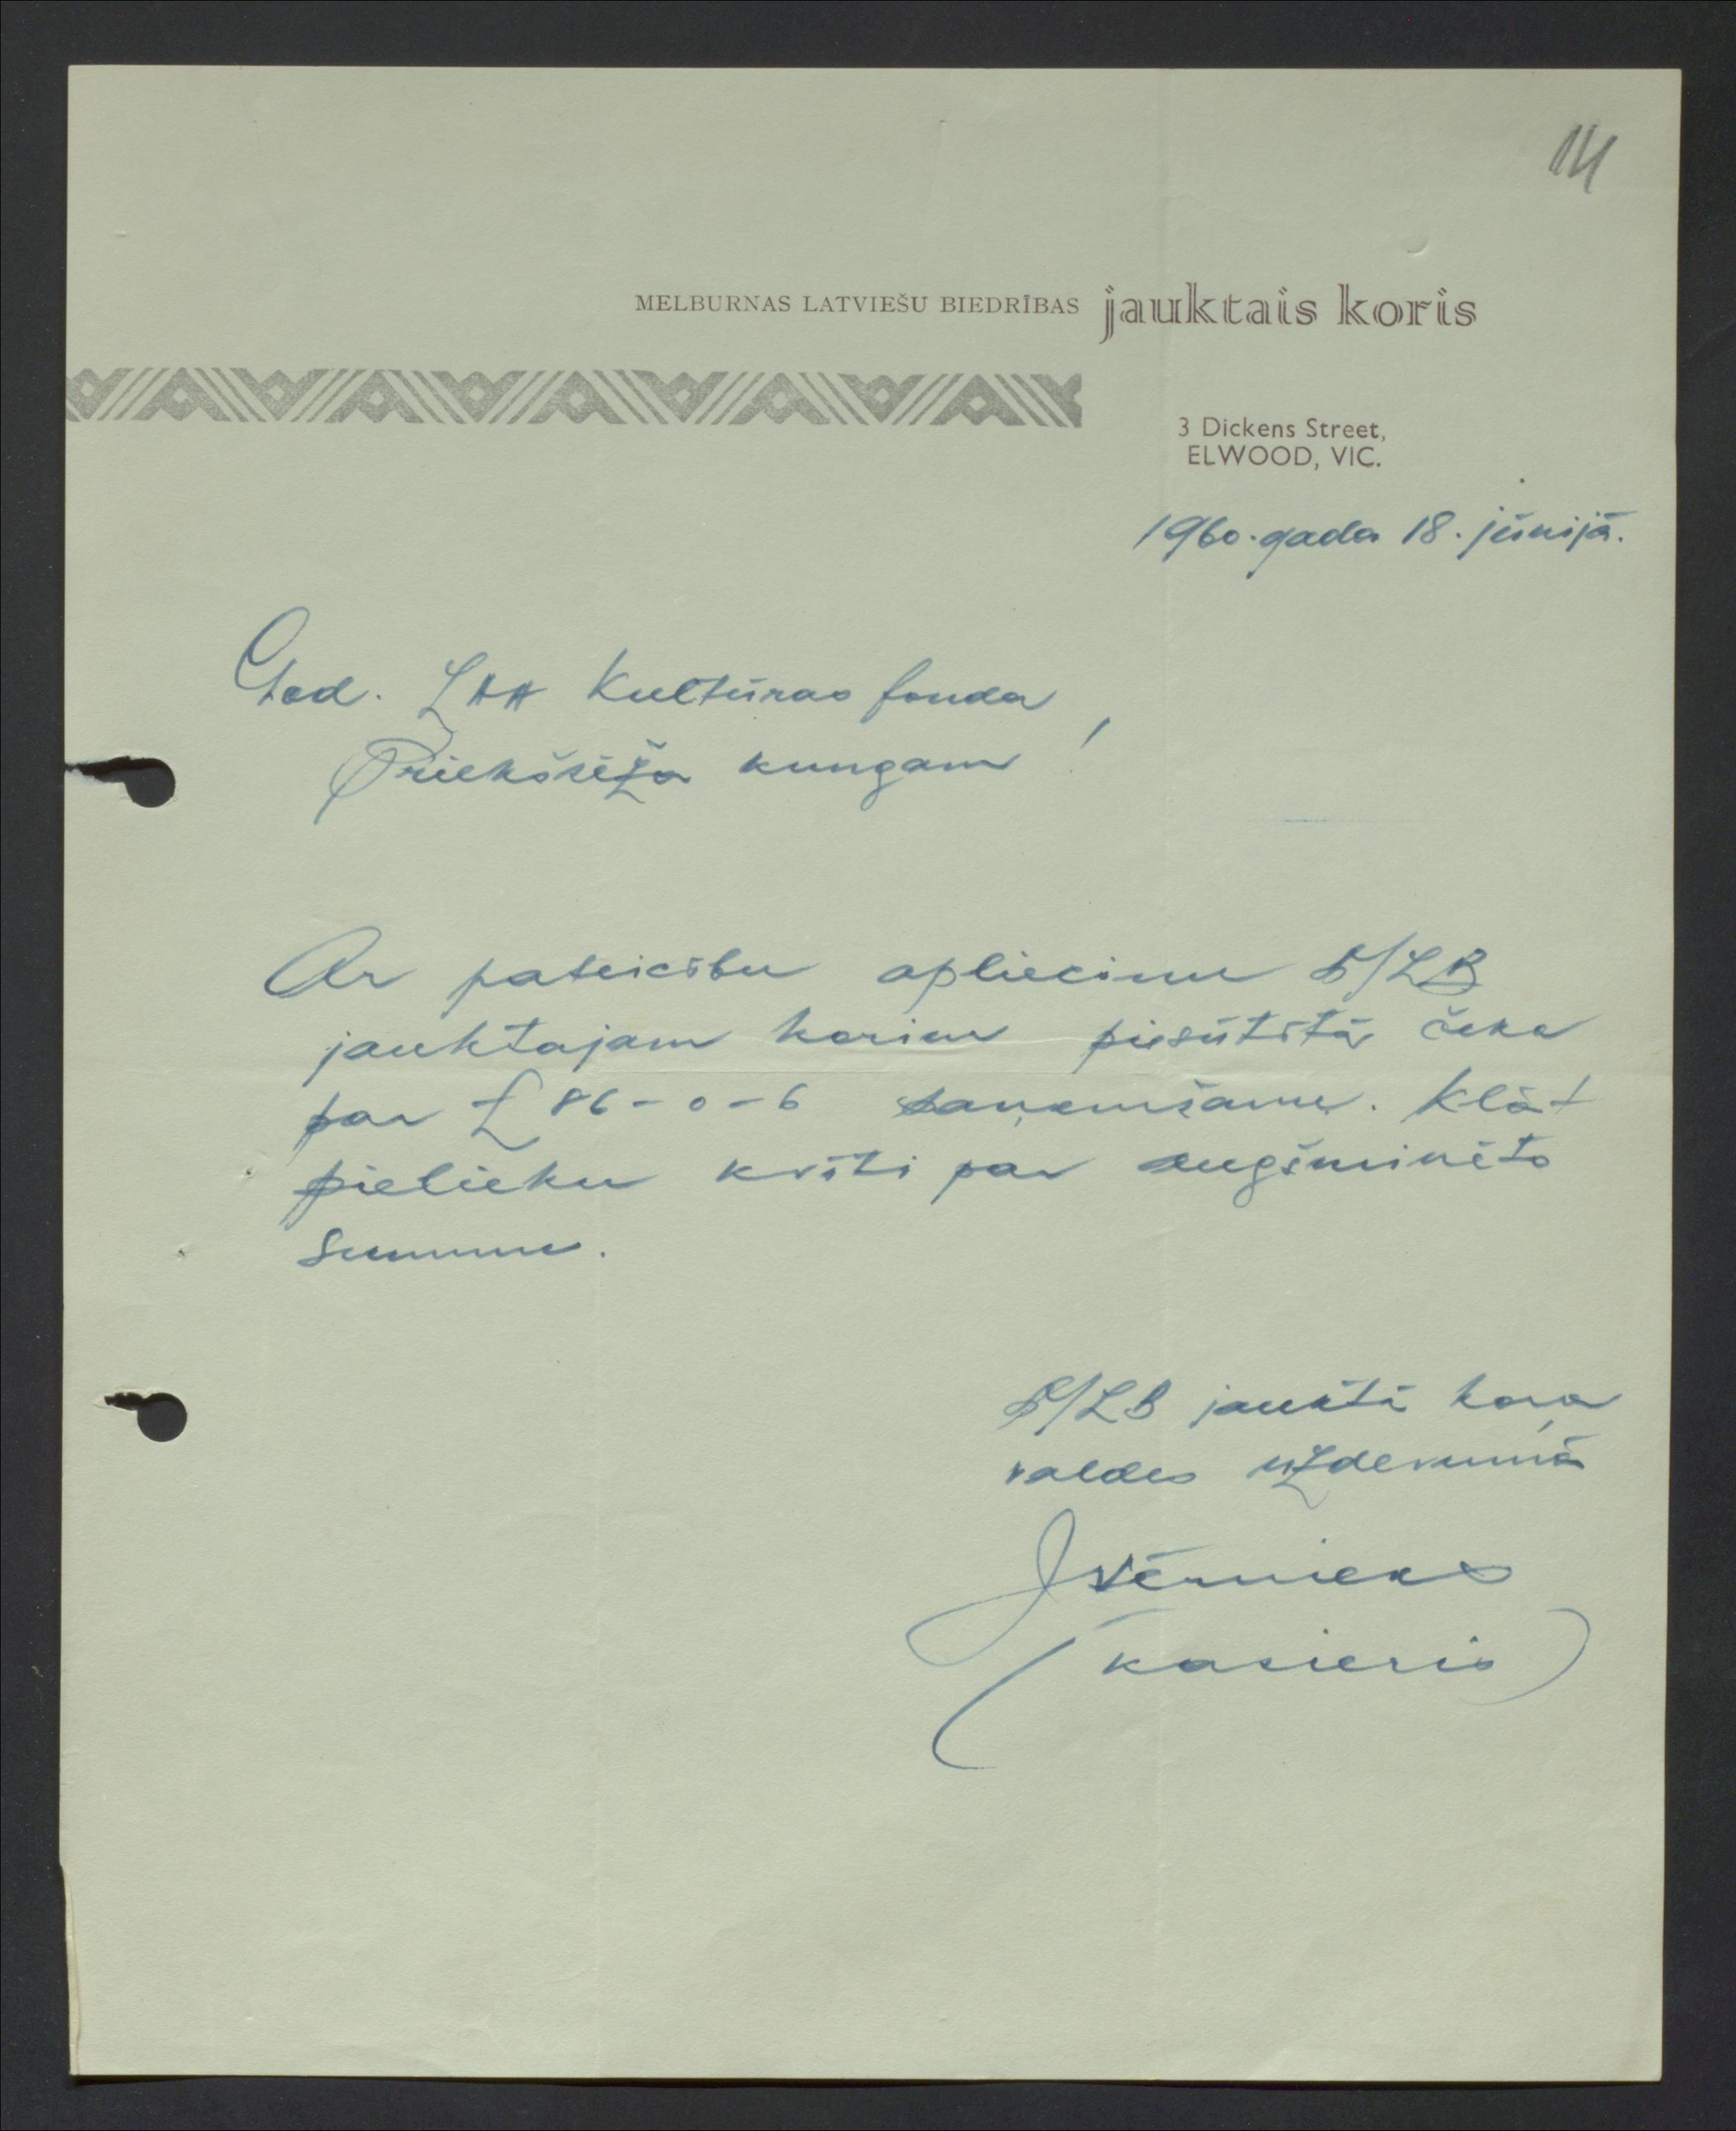 14
MELBURNAS LATVIEŠU BIEDRĪBAS jauktais koris
3 Dickens Street,
ELWOOD, VIC.
1960. gada 18. jūnijā.
God. LAA Kultūras fonda
Priekšsēža kungam!
Ar pateicību apliecinu M/LB
jauktajam korim piesūtītā čeka
par £ 86-0-6 saņemšanu. Klāt
pielieku kvīti par augšminēto
summu.
M/LB jauktā kora
valdes uzdevumā
J Vērnieks
(kasieris)